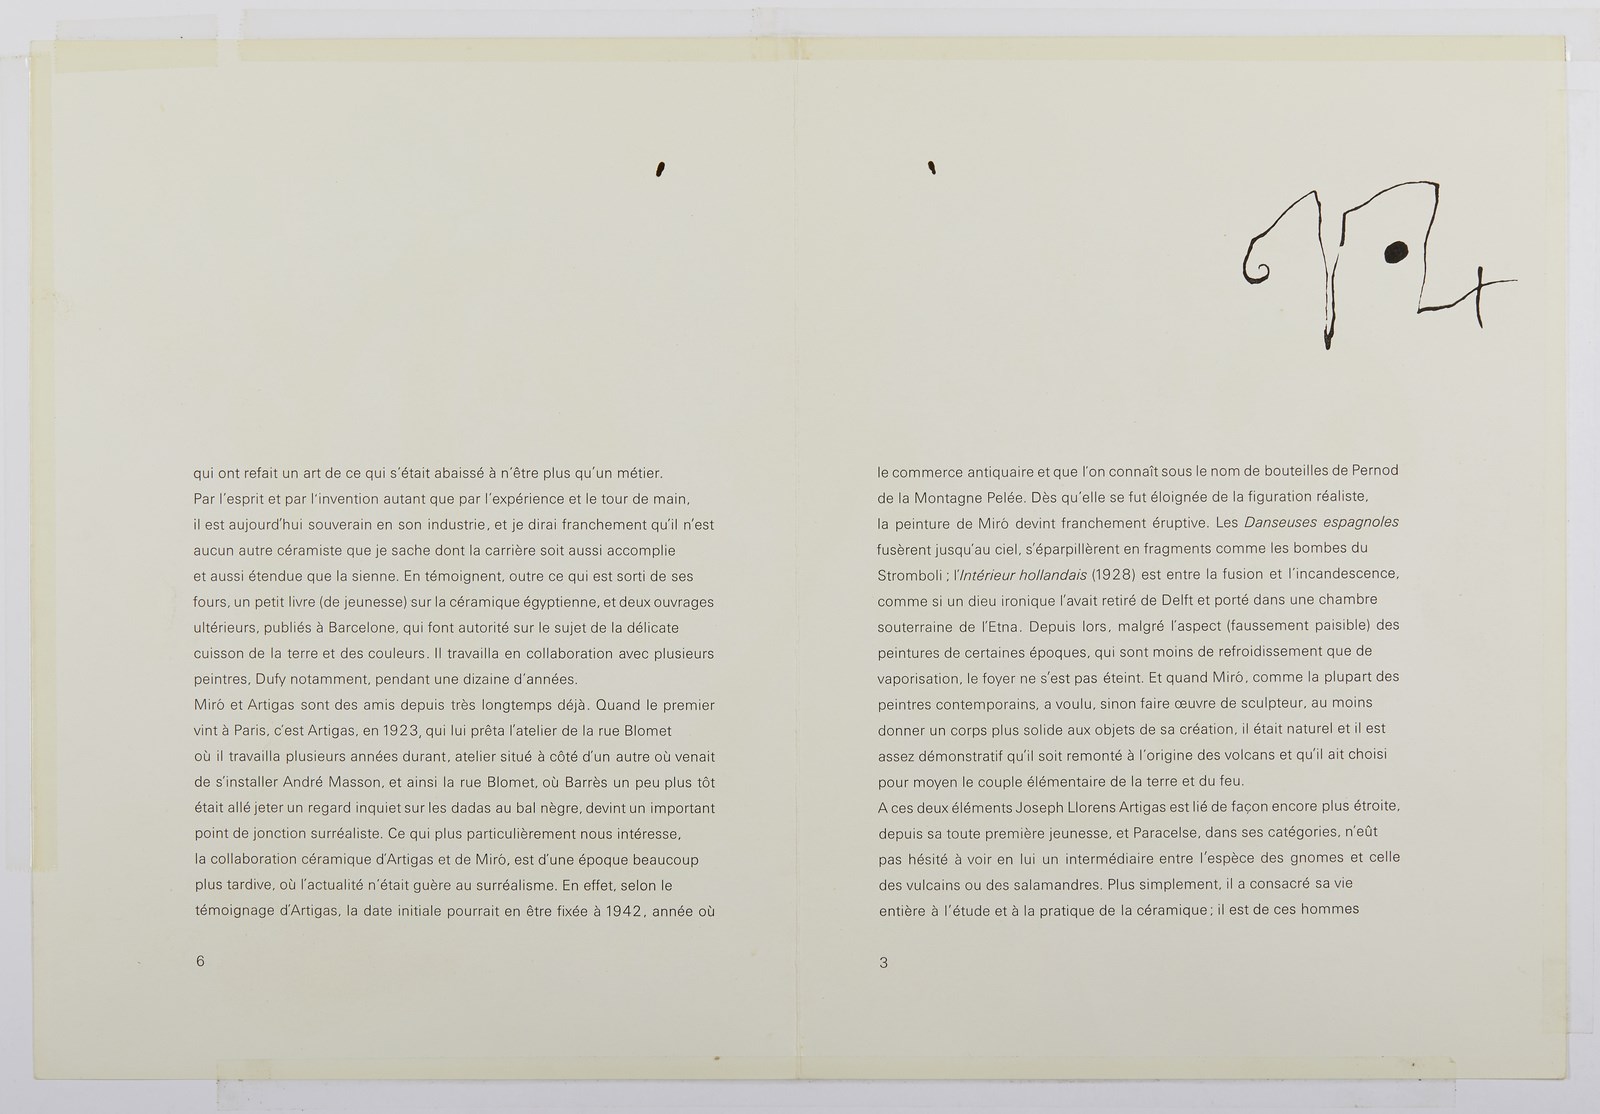 qui ont refait un art de ce qui s'était abaissé à n'être plus qu'un métier.
Par l'esprit et par l'invention autant que par l'expérience et le tour de main,
il est aujourd'hui souverain en son industrie, et je dirai franchement qu'il n'est
aucun autre céramiste que je sache dont la carrière soit aussi accomplie
et aussi étendue que la sienne. En témoignent, outre ce qui est sorti de ses
fours, un petit livre (de jeunesse) sur la céramique égyptienne, et deux ouvrages
ultérieurs, publiés à Barcelone, qui font autorité sur le sujet de la délicate
cuisson de la terre et des couleurs. Il travailla en collaboration avec plusieurs
peintres, Dufy notamment, pendant une dizaine d'années.
Miró et Artigas sont des amis depuis très longtemps déjà. Quand le premier
vint à Paris, c'est Artigas, en 1923, qui lui prêta l'atelier de la rue Blomet
où il travailla plusieurs années durant, atelier situé à côté d'un autre où venait
de s'installer André Masson, et ainsi la rue Blomet, où Barrès un peu plus tôt
était allé jeter un regard inquiet sur les dadas au bal nègre, devint un important
point de jonction surréaliste. Ce qui plus particulièrement nous intéresse,
la collaboration céramique d'Artigas et de Miró, est d'une époque beaucoup
plus tardive, où l'actualité n'était guère au surréalisme. En effet, selon le
témoignage d'Artigas, la date initiale pourrait en être fixée à 1942, année où
6
le commerce antiquaire et que l'on connaît sous le nom de bouteilles de Pernod
de la Montagne Pelée. Dès qu'elle se fut éloignée de la figuration réaliste,
la peinture de Miró devint franchement éruptive. Les Danseuses espagnoles
fusèrent jusqu'au ciel, s'éparpillèrent en fragments comme les bombes du
Stromboli ; l'Intérieur hollandais (1928) est entre la fusion et l'incandescence,
comme si un dieu ironique l'avait retiré de Delft et porté dans une chambre
souterraine de l'Etna. Depuis lors, malgré l'aspect (faussement paisible) des
peintures de certaines époques, qui sont moins de refroidissement que de
vaporisation, le foyer ne s'est pas éteint. Et quand Miró, comme la plupart des
peintres contemporains, a voulu, sinon faire œuvre de sculpteur, au moins
donner un corps plus solide aux objets de sa création, il était naturel et il est
assez démonstratif qu'il soit remonté à l'origine des volcans et qu'il ait choisi
pour moyen le couple élémentaire de la terre et du feu.
A ces deux éléments Joseph Llorens Artigas est lié de façon encore plus étroite,
depuis sa toute première jeunesse, et Paracelse, dans ses catégories, n'eût
pas hésité à voir en lui un intermédiaire entre l'espèce des gnomes et celle
des vulcains ou des salamandres. Plus simplement, il a consacré sa vie
entière à l'étude et à la pratique de la céramique ; il est de ces hommes
3